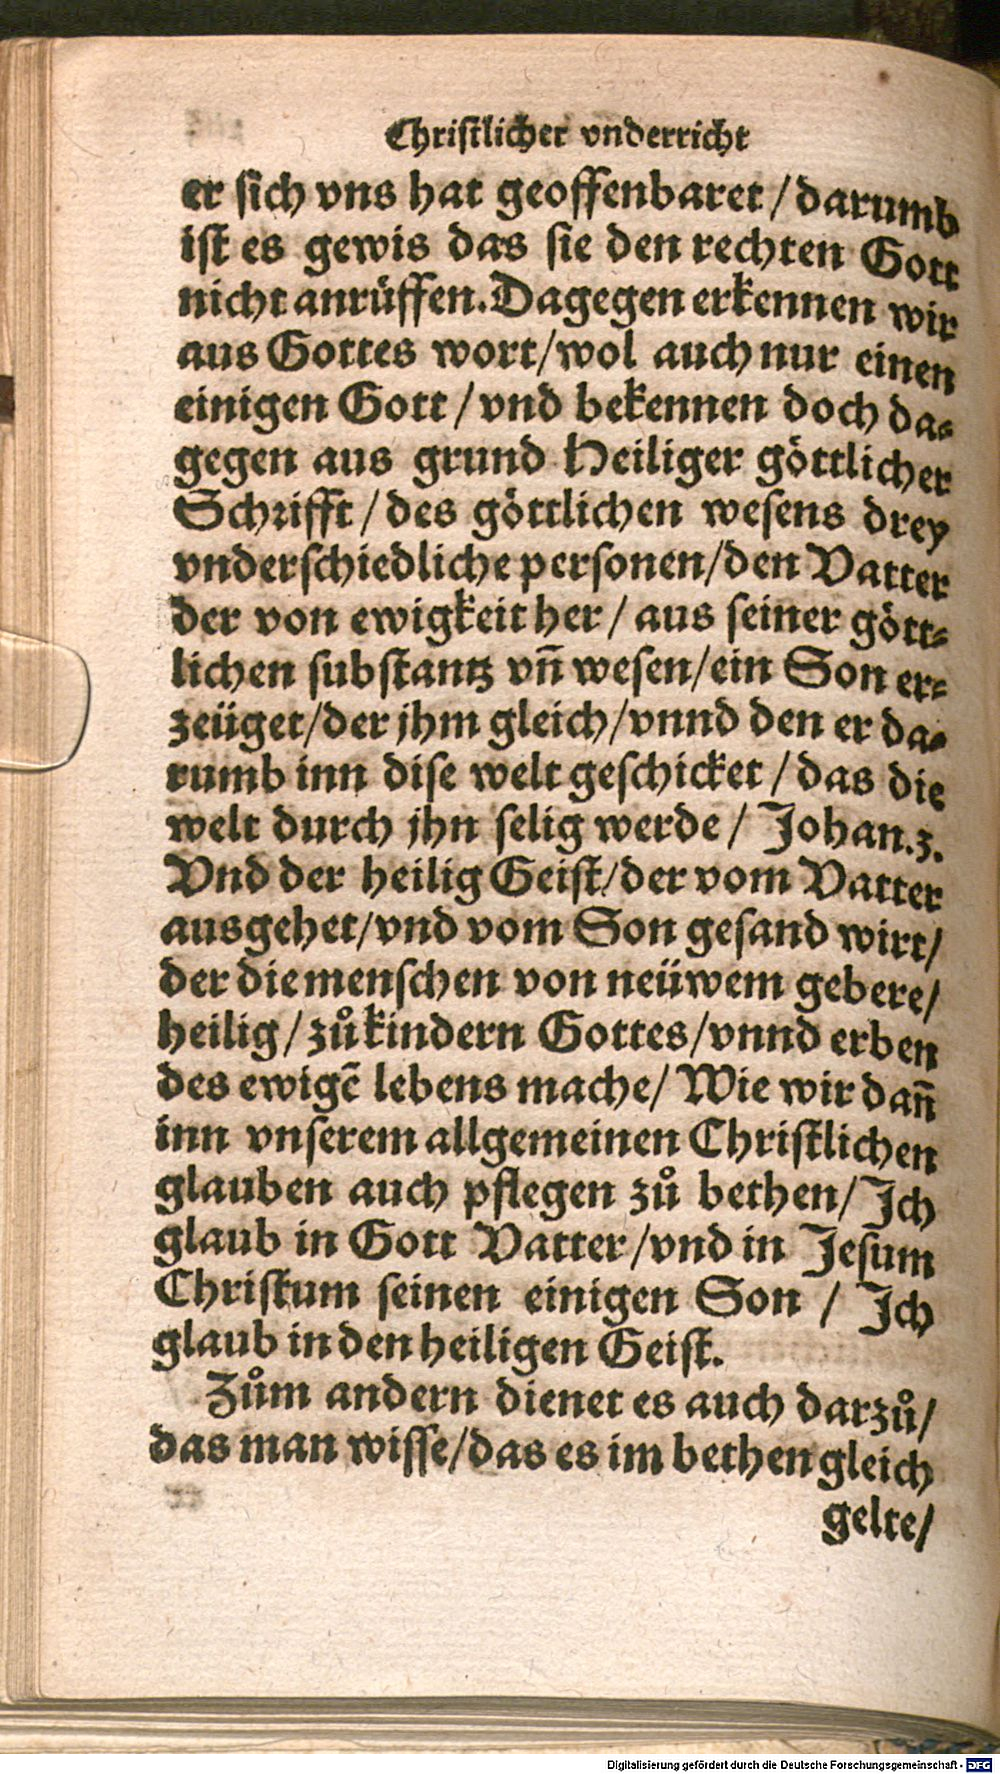 Christlicher vnderricht
er sich vns hat geoffenbaret / darumb
ist es gewis das sie den rechten Gott
nicht anrüffen. Dagegen erkennen wir
aus Gottes wort / wol auch nur einen
einigen Gott / vnd bekennen doch da⸗
gegen aus grund Heiliger göttlicher
Schrifft / des göttlichen wesens drey
vnderschiedliche personen / den Vatter
der von ewigkeit her / aus seiner gött⸗
lichen substantz vñ wesen / ein Son er⸗
zeüget / der jhm gleich / vnnd den er da⸗
rumb inn dise welt geschicket / das die
welt durch jhn selig werde / Johan.3.
Vnd der heilig Geist / der vom Vatter
ausgehet / vnd vom Son gesand wirt /
der die menschen von neüwem gebere /
heilig / zůkindern Gottes / vnnd erben
des ewigẽ lebens mache / Wie wir dañ
inn vnserem allgemeinen Christlichen
glauben auch pflegen zů bethen / Ich
glaub in Gott Vatter / vnd in Jesum
Christum seinen einigen Son / Ich
glaub in den heiligen Geist.
Zům andern dienet es auch darzů /
das man wisse / das es im bethen gleich
gelte /
Digitalisierung gefördert durch die Deutsche Forschungsgemeinschaft - DFG